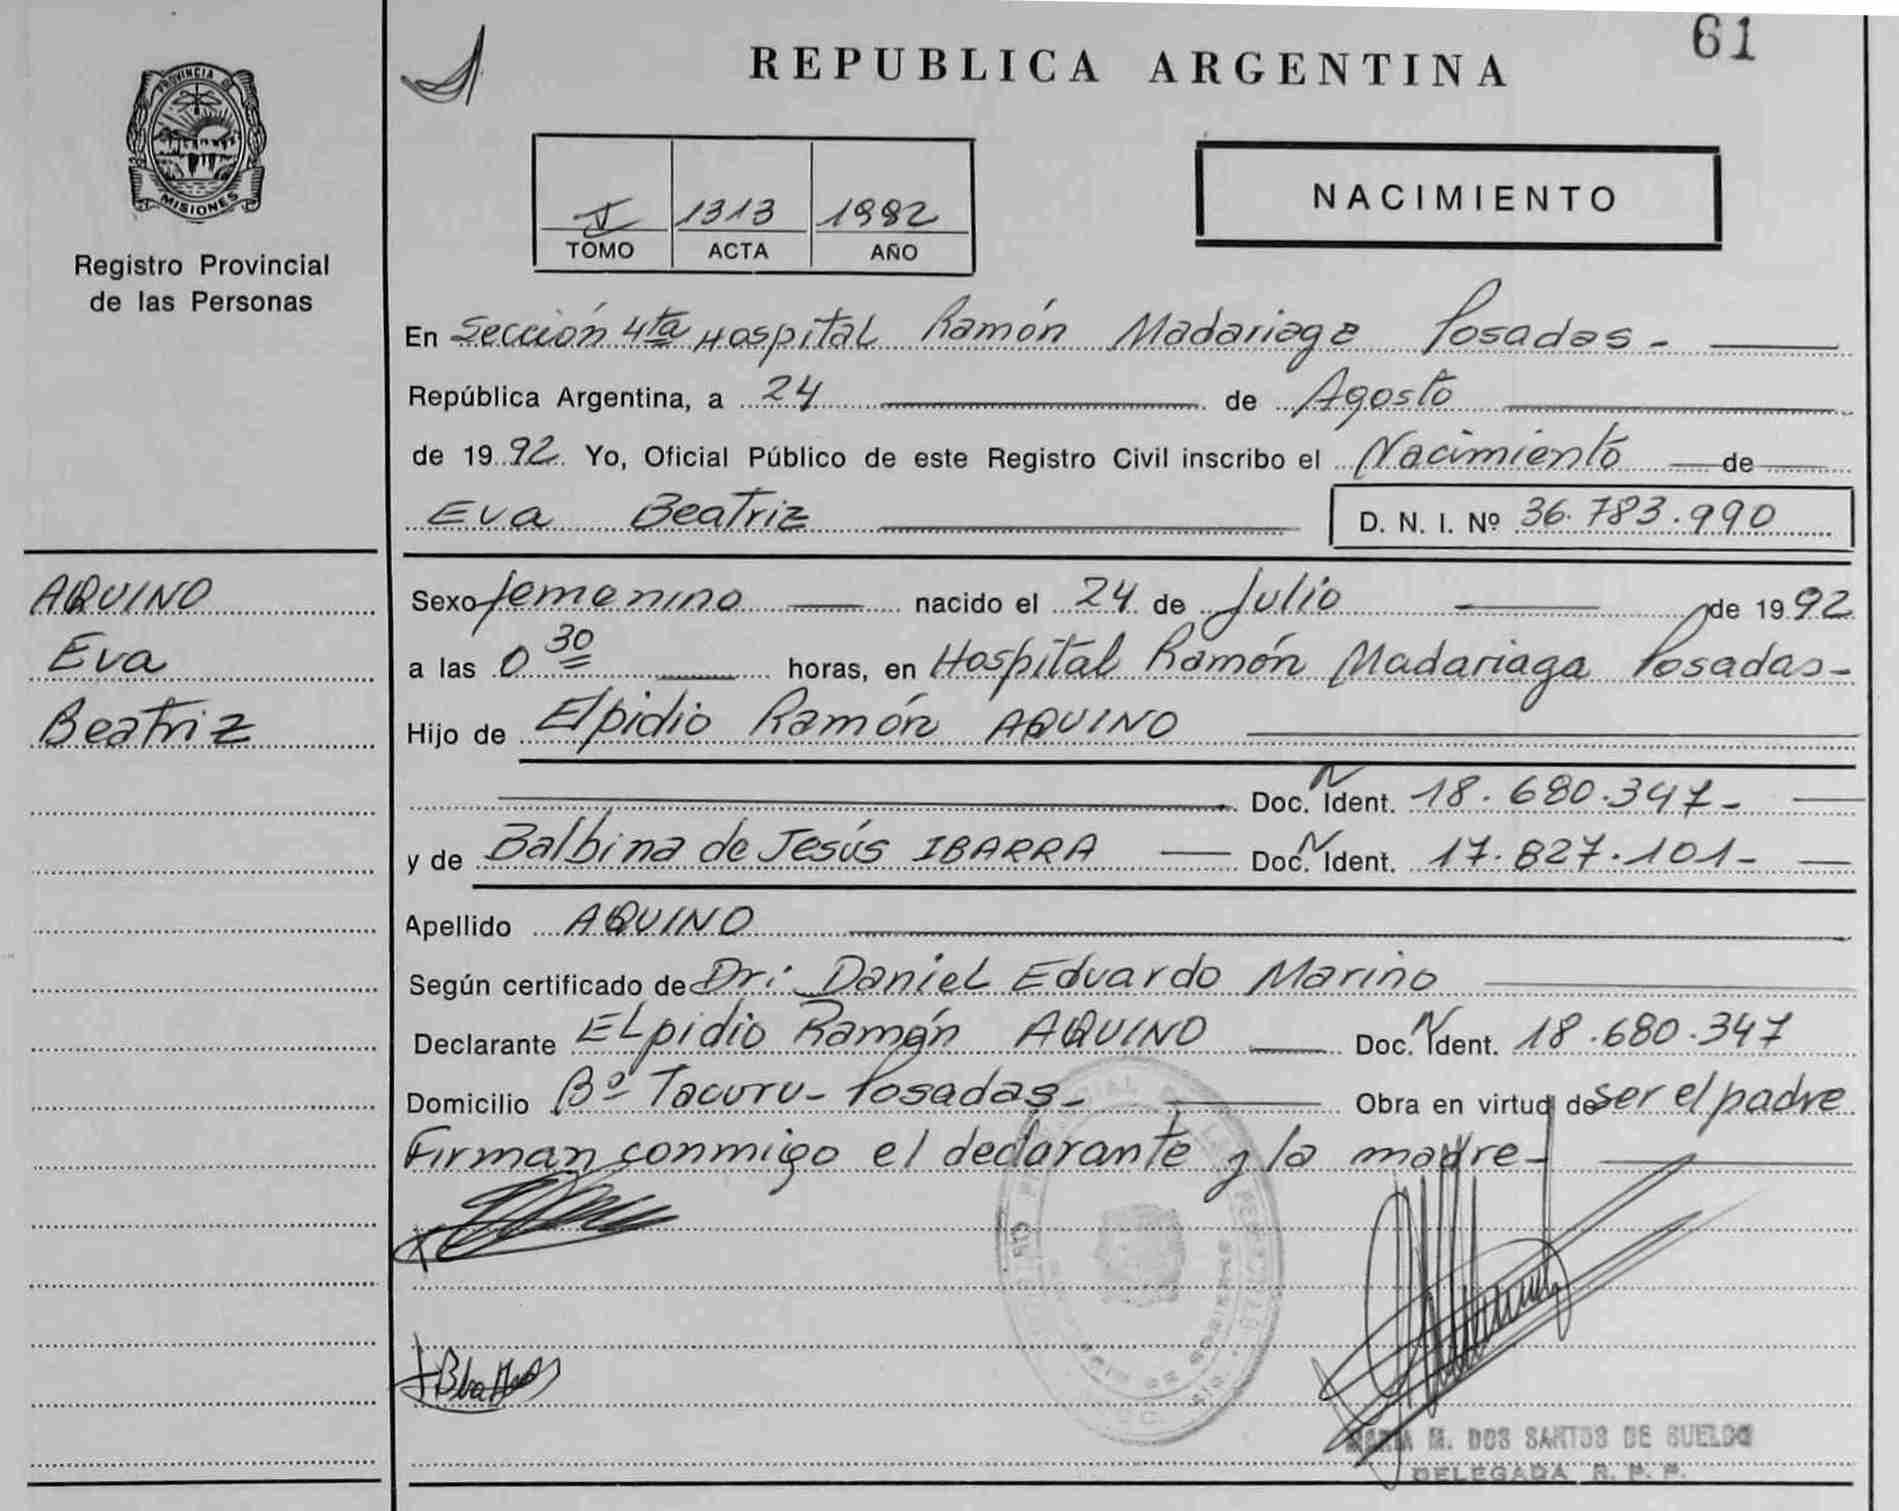 61
REPUBLICA ARGENTINA
PROVINCIA DE
MISIONES
Registro Provincial
de las Personas
1313 1992
TOMO ACTA AÑO
NACIMIENTO
En Sección 4ta Hospital Ramón Madariaga Posadas.-
República Argentina, a 24 de Agosto
de 1992. Yo, Oficial Público de este Registro Civil inscribo el Nacimiento de
Eva Beatriz D. N. I. Nº 36.783.990
AQUINO
Eva
Beatriz
Sexo femenino nacido el 24 de Julio de 1992
a las 0 30 horas, en Hospital Ramón Madariaga Posadas-
Hijo de Elpidio Ramón AQUINO
Doc. N Ident. 18.680.347-
y de Balbina de Jesús IBARRA Doc. N Ident. 17.827.101-
Apellido AQUINO
Según certificado de Dr: Daniel Eduardo Mariño
Declarante ELpidio Ramón AQUINO Doc. N Ident. 18.680.347
Domicilio Bº Tacuru- Posadas- Obra en virtud de ser el padre
Firman conmigo el declarante y la madre-
MARIA M. DOS SANTOS DE SUELDO
DELEGADA R. P. P.